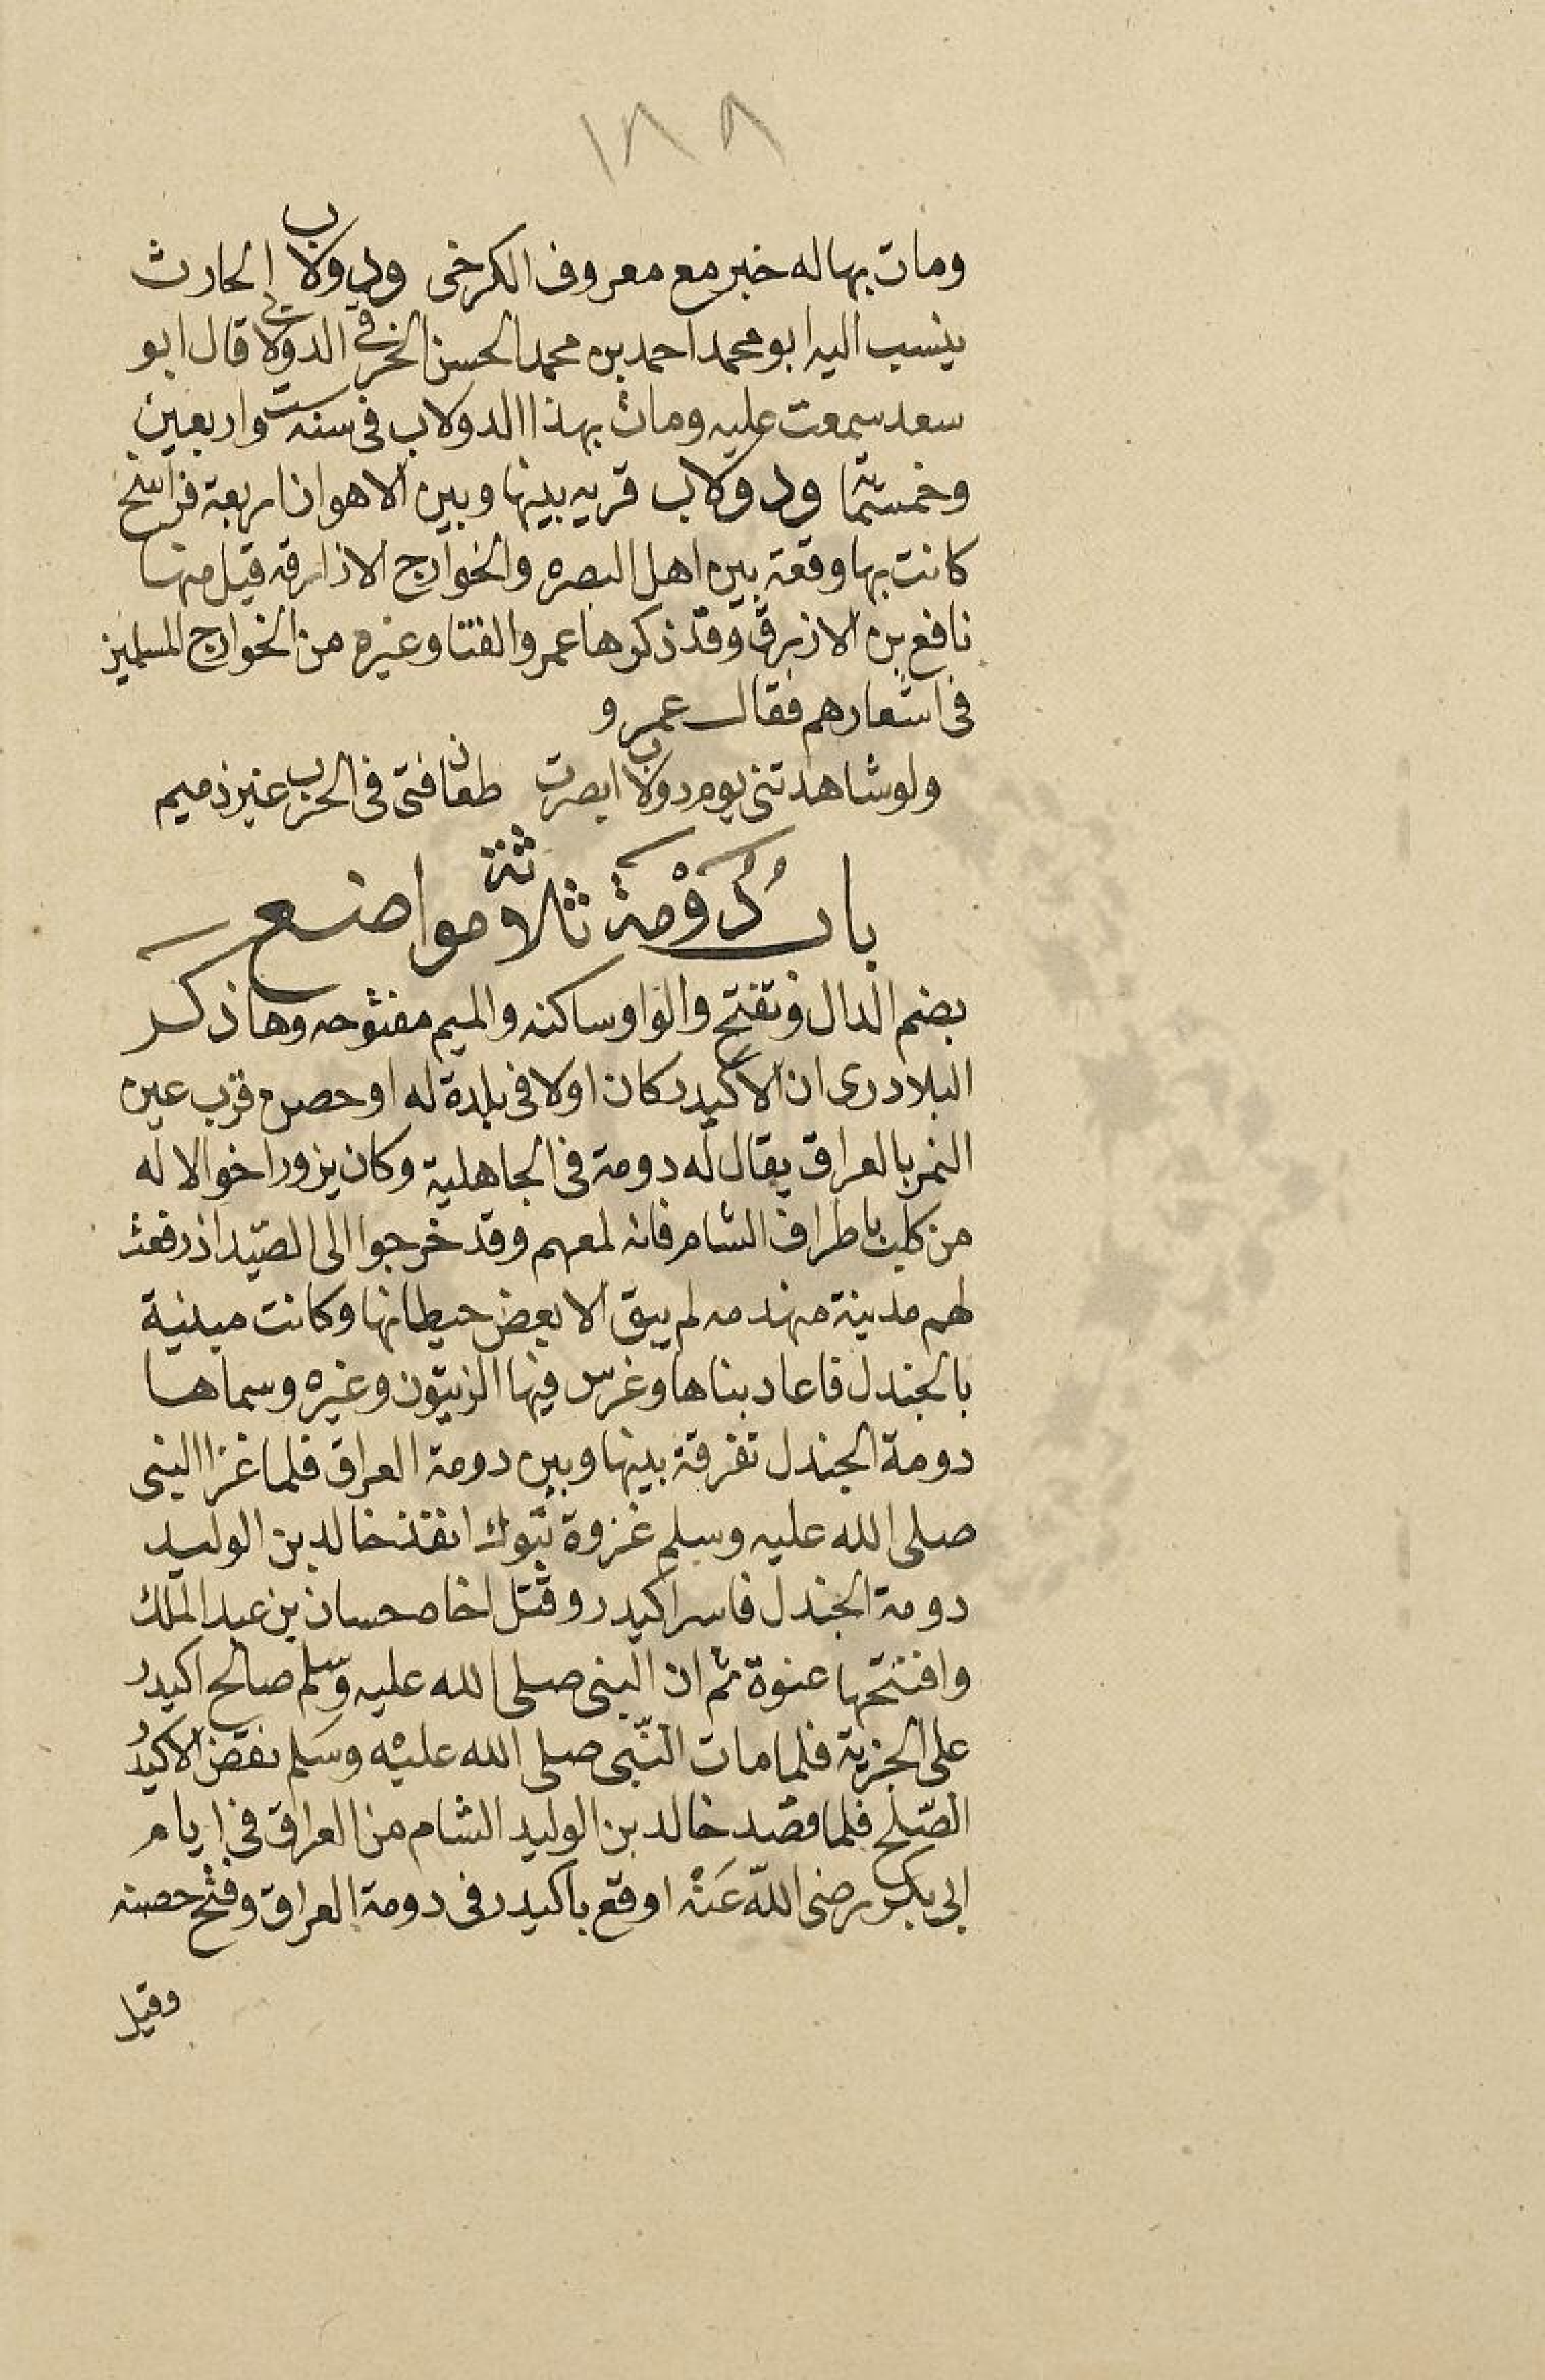 ١٨٨
ومات بها له خبر مع معروف الكرخى ودولاب الحارث
ينسب اليه ابو محمد احمد بن محمد الحسن الخرقى الدولابى قال ابو
سعد سمعت عليه ومات بهذا الدولاب فى سنه ست واربعين
وخمسمائة ودولاب قريه بينها وبين الاهواز اربعة فراسخ
كانت بها وقعة بين اهل البصره والخوارج الازارقه قيل منها
نافع بن الازرق وقد ذكرها عمرو الفتا وغيره من الخوارج المسلمين
فى اشعارهم فقال عمرو
ولو شاهدتنى يوم دولاب ابصرت طعان فتى فى الحرب غير ذميم
باب دُوْمَة ثلاثة مواضع
بضم الدال وتفتح والواو ساكنه والميم مفتوحه وها ذكر
البلادرى ان الاكيدر كان اولا فى بلدة له او حصن قرب عين
النمر بالعراق يقال له دومة فى الجاهلية وكان يزور اخوالا له
من كلب باطراف الشام فانه لمعهم وقد خرجوا الى الصّيد اذ رفعت
لهم مدينة منهدمه لم يبق الا بعض حيطانها وكانت مبنية
بالجندل فاعاد بناها وغرس فيها الزيتون وغيره وسماها
دومة الجندل تفرقة بينها وبين دومة العراق فلما غزا النبى
صلى الله عليه وسلم غزوة تبوك انفذ خالد بن الوليد
دومة الجندل فاسر اكيدر وقتل اخاه حسان بن عبد الملك
وافتتحها عنوة ثم ان النبى صلى الله عليه وسلم صالح اكيدر
على الجزية فلما مات النّبى صلى الله عليْه وسَلم نقض الاكيدُ
الصّلح فلما قصد خالد بن الوليد الشام من العراق فى ايام
ابى بكر رضى اللّه عَنْه اوقع باكيدر فى دومة العراق وفتح حصنه
وقيل